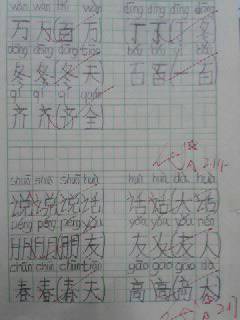 wàn wàn bǎi wàn dīng dīng dīng dōng
万 万 百 万 丁 丁 丁 冬
dōng dōng dōng tiān bǎi bǎi yì bǎi
冬 冬 冬 天 百 百 一 百
qí qí qí quán
齐 齐 齐 全
shuō shuō shuō huà huà huà dà huà
说 说 说 话 话 话 大 话
péng péng péng yǒu yǒu yǒu yǒu rén
朋 朋 朋 友 友 友 友 人
chūn chūn chūn tiān gāo gāo gāo dà
春 春 春 天 高 高 高 大